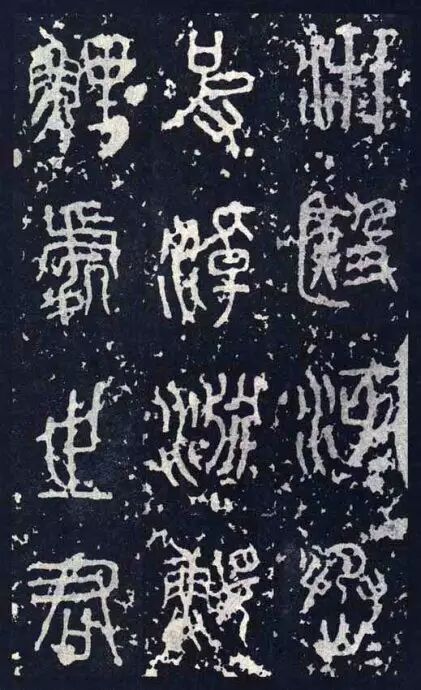 汧殹沔丞
皮淖淵鰋
鯉處之君